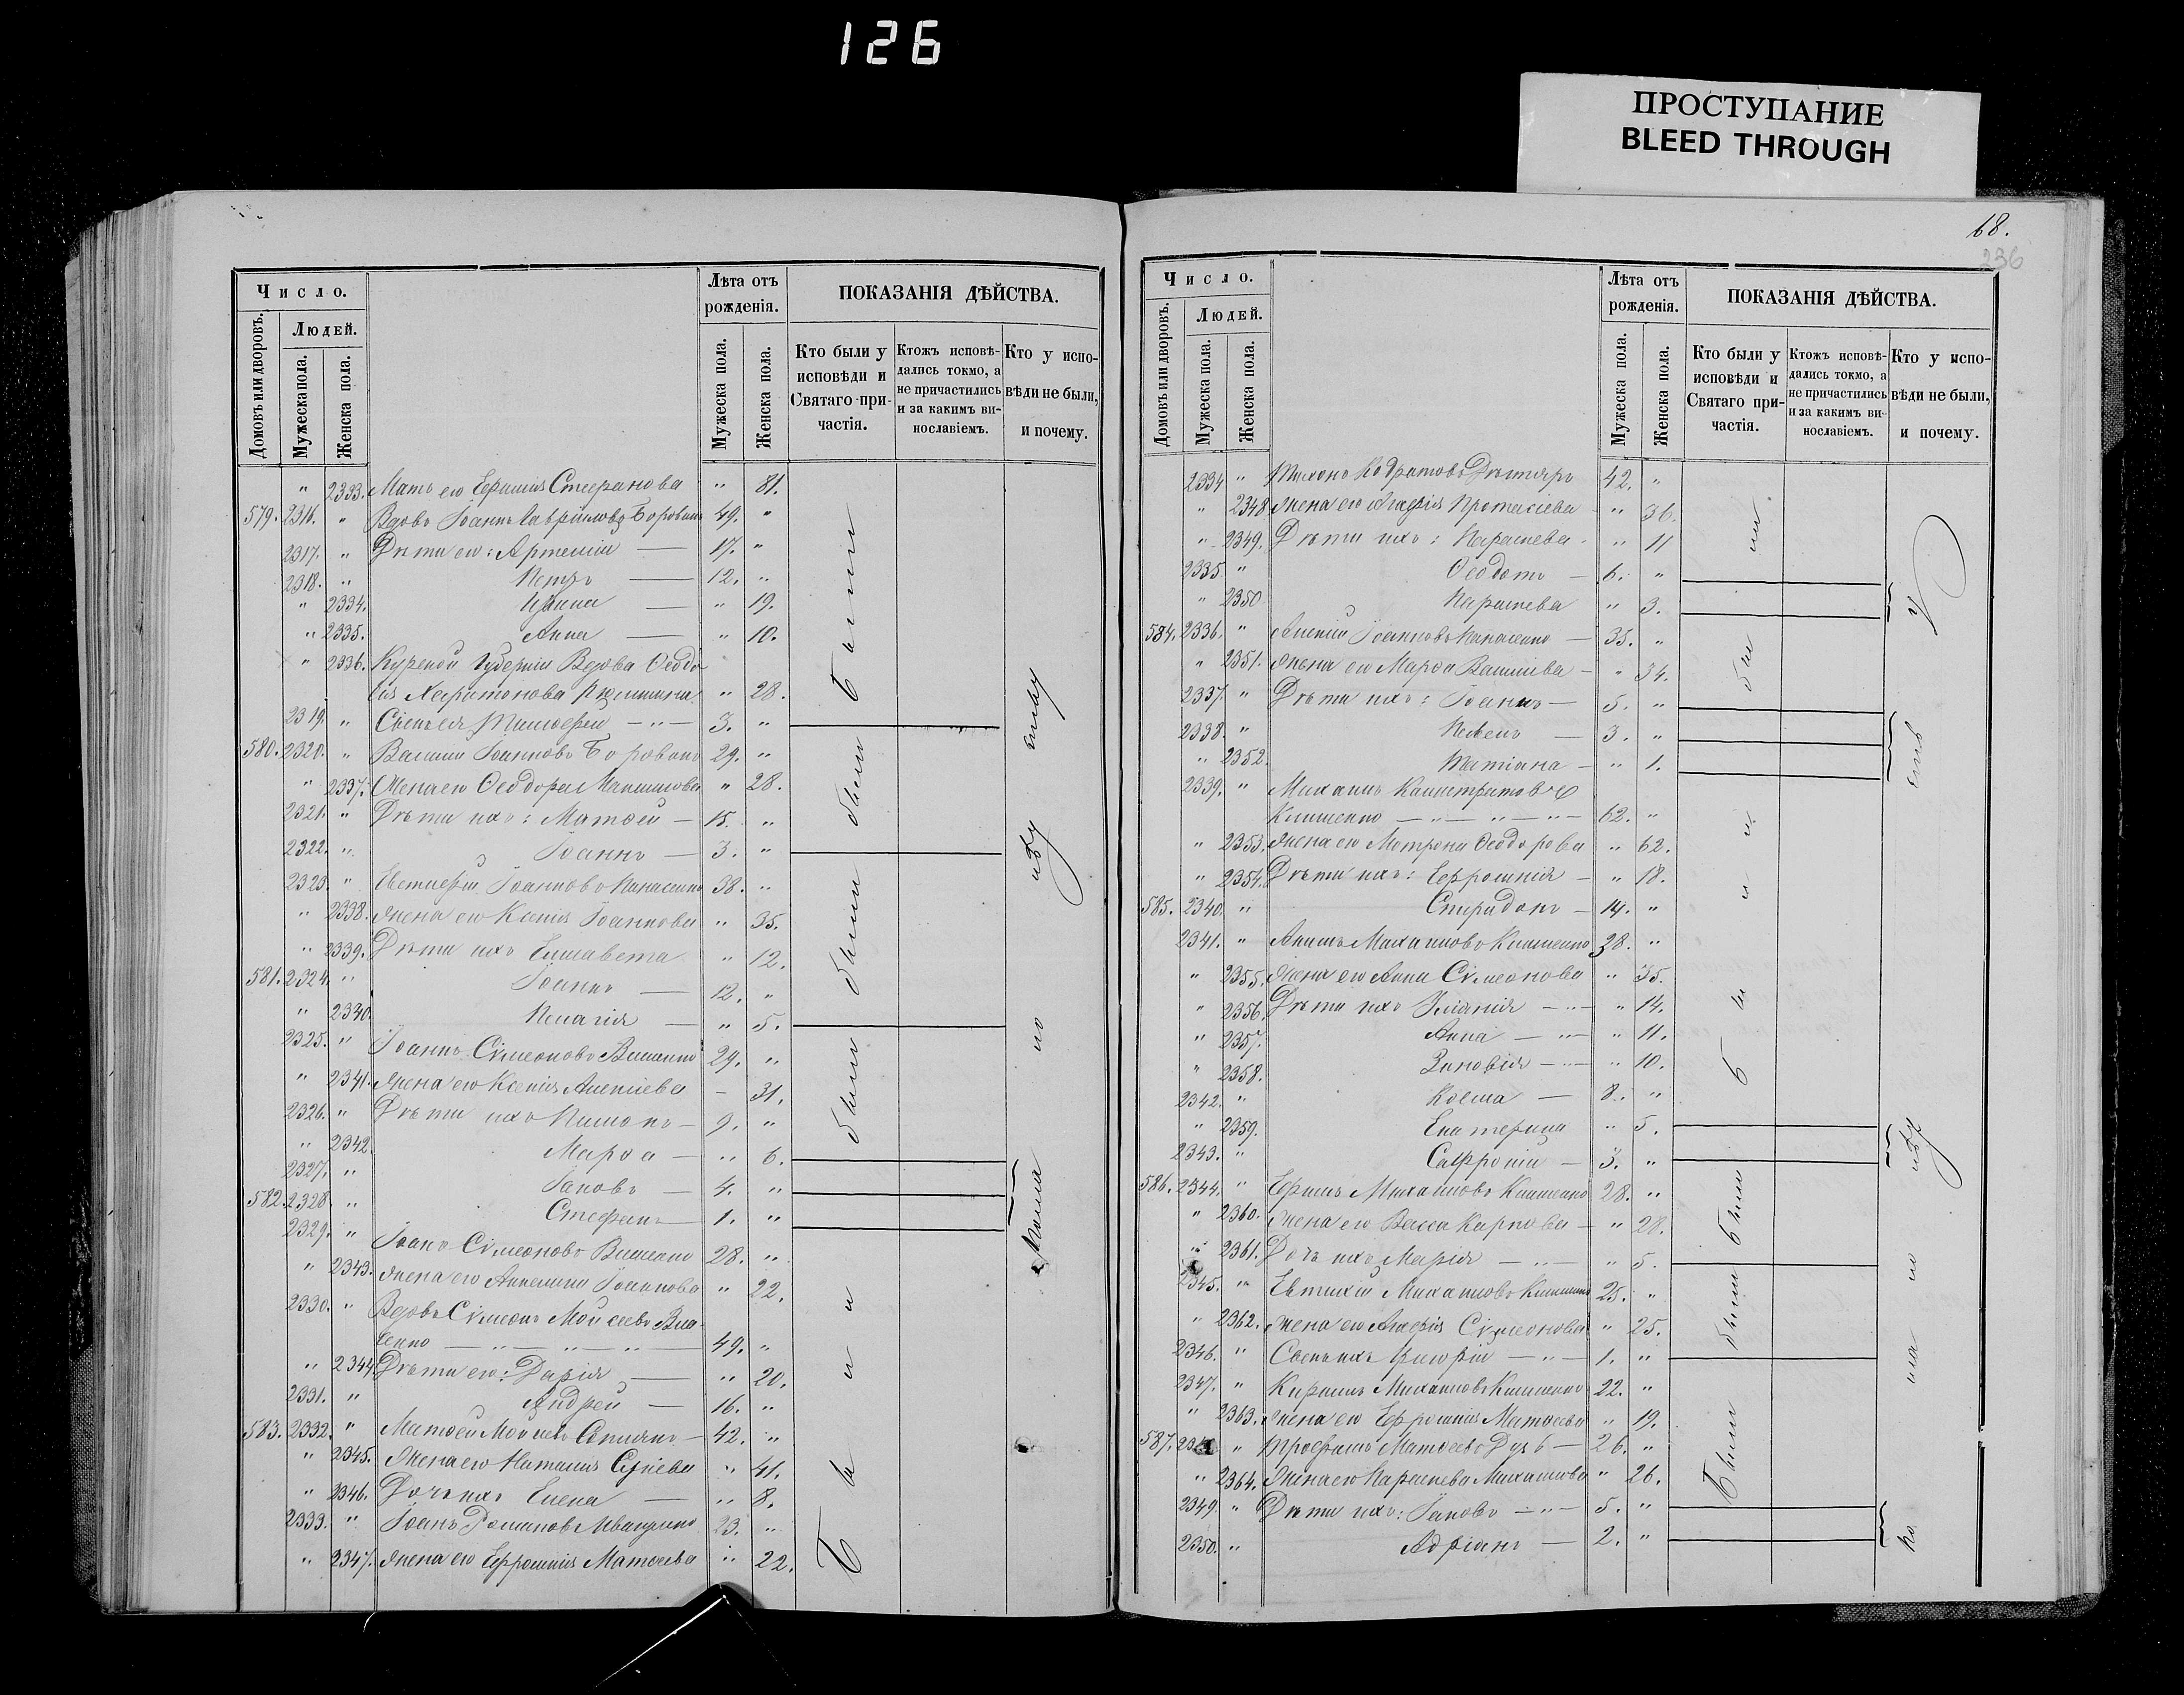 126
ПРОСТУПАНИЕ
BLEED THROUGH
Число.
Людей.
Домовъ или дворовъ.
Мужеска пола.
Женска пола.
Лѣта отъ рожденія.
Мужеска пола.
Женска пола.
ПОКАЗАНІЯ ДѢЙСТВА.
Кто были у исповѣди и Святаго причастія.
Ктожъ исповѣдались токмо, а не причастились и за какимъ винославіемъ.
Кто у исповѣди не были, и почему.
" 2333. Мать его Евфимія Стефанова " 81.
579. 2316. " Вдовъ Іоаннъ Гавріиловъ 49. "
2317. " Дѣти его: Артемій — 17. "
2318. " Петръ — 12. "
" 2334. Ирина — " 19.
" 2335. Анна — " 10.
" 2336. Курской Губерніи Вдова Ѳеодо
сія Харитонова " 28.
2319. " Тимофей — " — 3. "
580. 2320. " Василій Іоанновъ 29. "
" 2337. Жена его Ѳеодора " 28.
2321. " Дѣти ихъ: Матѳей — 15. "
2322. " Іоаннъ — 3. "
2323. " Евстафій Іоанновъ Панасенко 38. "
" 2338. Жена его Ксенія Іоаннова " 35.
" 2339. Дѣти ихъ Елисавета " 12.
581. 2324. " Іоаннъ — 12. "
" 2340. Пелагія — " 5.
2325. " Іоаннъ Сѵмеоновъ 29. "
" 2341. Жена его Ксенія Алексіева — 31.
2326. " Дѣти ихъ — 9. "
" 2342. Марѳа — " 6.
2327. " Іаковъ — 4. "
582. 2328. " Стефанъ — 1. "
2329. " Іоанъ Сѵмеоновъ 28. "
" 2343. Жена его Іоаннова " 22.
2330. " Вдовъ Сѵмеонъ Моисеевъ
сенко — " — " — " — 49. "
" 2344. Дѣти его: Дарія — " 20.
2331. " Андрей — 16. "
583. 2332. " Матѳей 42. "
" 2345. Жена его Наталія " 41.
" 2346. Дочь ихъ Елена — " 8.
2333. " Іоанъ Романовъ 23. "
" 2347. Жена его Евфросинія Матѳеева " 22.
Были
были
были
были
Были
68.
236
Число.
Людей.
Домовъ или дворовъ.
Мужеска пола.
Женска пола.
Лѣта отъ рожденія.
Мужеска пола.
Женска пола.
ПОКАЗАНІЯ ДѢЙСТВА.
Кто были у исповѣди и Святаго причастія.
Ктожъ исповѣдались токмо, а не причастились и за какимъ винославіемъ.
Кто у исповѣди не были, и почему.
2334 " Тихонъ 42. "
" 2348 Жена его Агафія Протасіева " 36.
" 2349. Дѣти ихъ: Параскева " 11
2335 " Ѳеодотъ — 6. "
" 2350 Параскева " 3.
584. 2336. " Алексій Іоанновъ Панасенко — 35. "
" 2351. Жена его Марѳа Васильева — " 34.
2337. " Дѣти ихъ: Іоаннъ — 5. "
2338. " — 3. "
" 2352. Татіана — " 1.
2339. " Михаилъ Калистратовъ
Клименко — " — " — " — 62. "
" 2353. Жена его Матрона Ѳеодорова " 62.
" 2354. Дѣти ихъ: Евфросинія — " 18.
585. 2340. " Спиридонъ — 14. "
2341. " Михаиловъ Клименко 38. "
" 2355. Жена его Анна Сѵмеонова " 35.
" 2356. Дѣти ихъ Іуліанія — " — " 14.
" 2357. Анна — " — " 11.
" 2358. Зиновія — " — " 10.
2342. " Косма — 8. "
" 2359. Екатерина " 5.
2343. " Софроній — 3. "
586. 2344. " Ефимъ Михаиловъ Клименко 28. "
" 2360. Жена его Васса Карпова — " 28.
" 2361. Дочь ихъ Марія — " — " 5.
2345. " Евтихій Михаиловъ Клименко 25. "
" 2362. Жена его Агафія Сѵмеонова " 25.
2346. " Григорій — " — 1. "
2347. " Кириллъ Михаиловъ Клименко 22. "
" 2363. Жена его Евфросинія Матѳеева " 19.
587. " Трофимъ Матѳеевъ — 26. "
" 2364. Жена его Параскева Михаилова " 26.
2349. " Дѣти ихъ: Іаковъ — " — 5. "
2350. " Адріанъ — 2. "
были
Были
были
были
Были